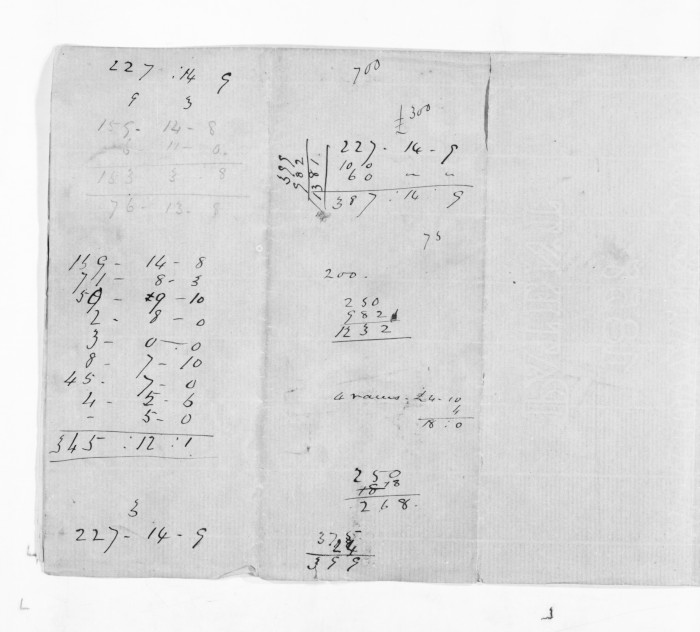 227 : 14 9
9 3
159 - 14 - 8
8 11 - 0.
153 3 8
76 - 13 - 9
159 - 14 - 8
71 - 8 - 3
50 - 19 - 10
2 - 8 - 0
3 - 0 - 0
8 - 7 - 10
45 - 7 - 0
4 - 5 - 6
- 5 - 0
345 : 12 : 1
3
227 - 14 - 9
700
£300
227 - 14 - 9
100
60 - -
387 : 14 9
399
982
1381
75
200.
250
982
1232
4 rams - 24 - 10
4
18 : 0
250
18 18
268.
375
24
399